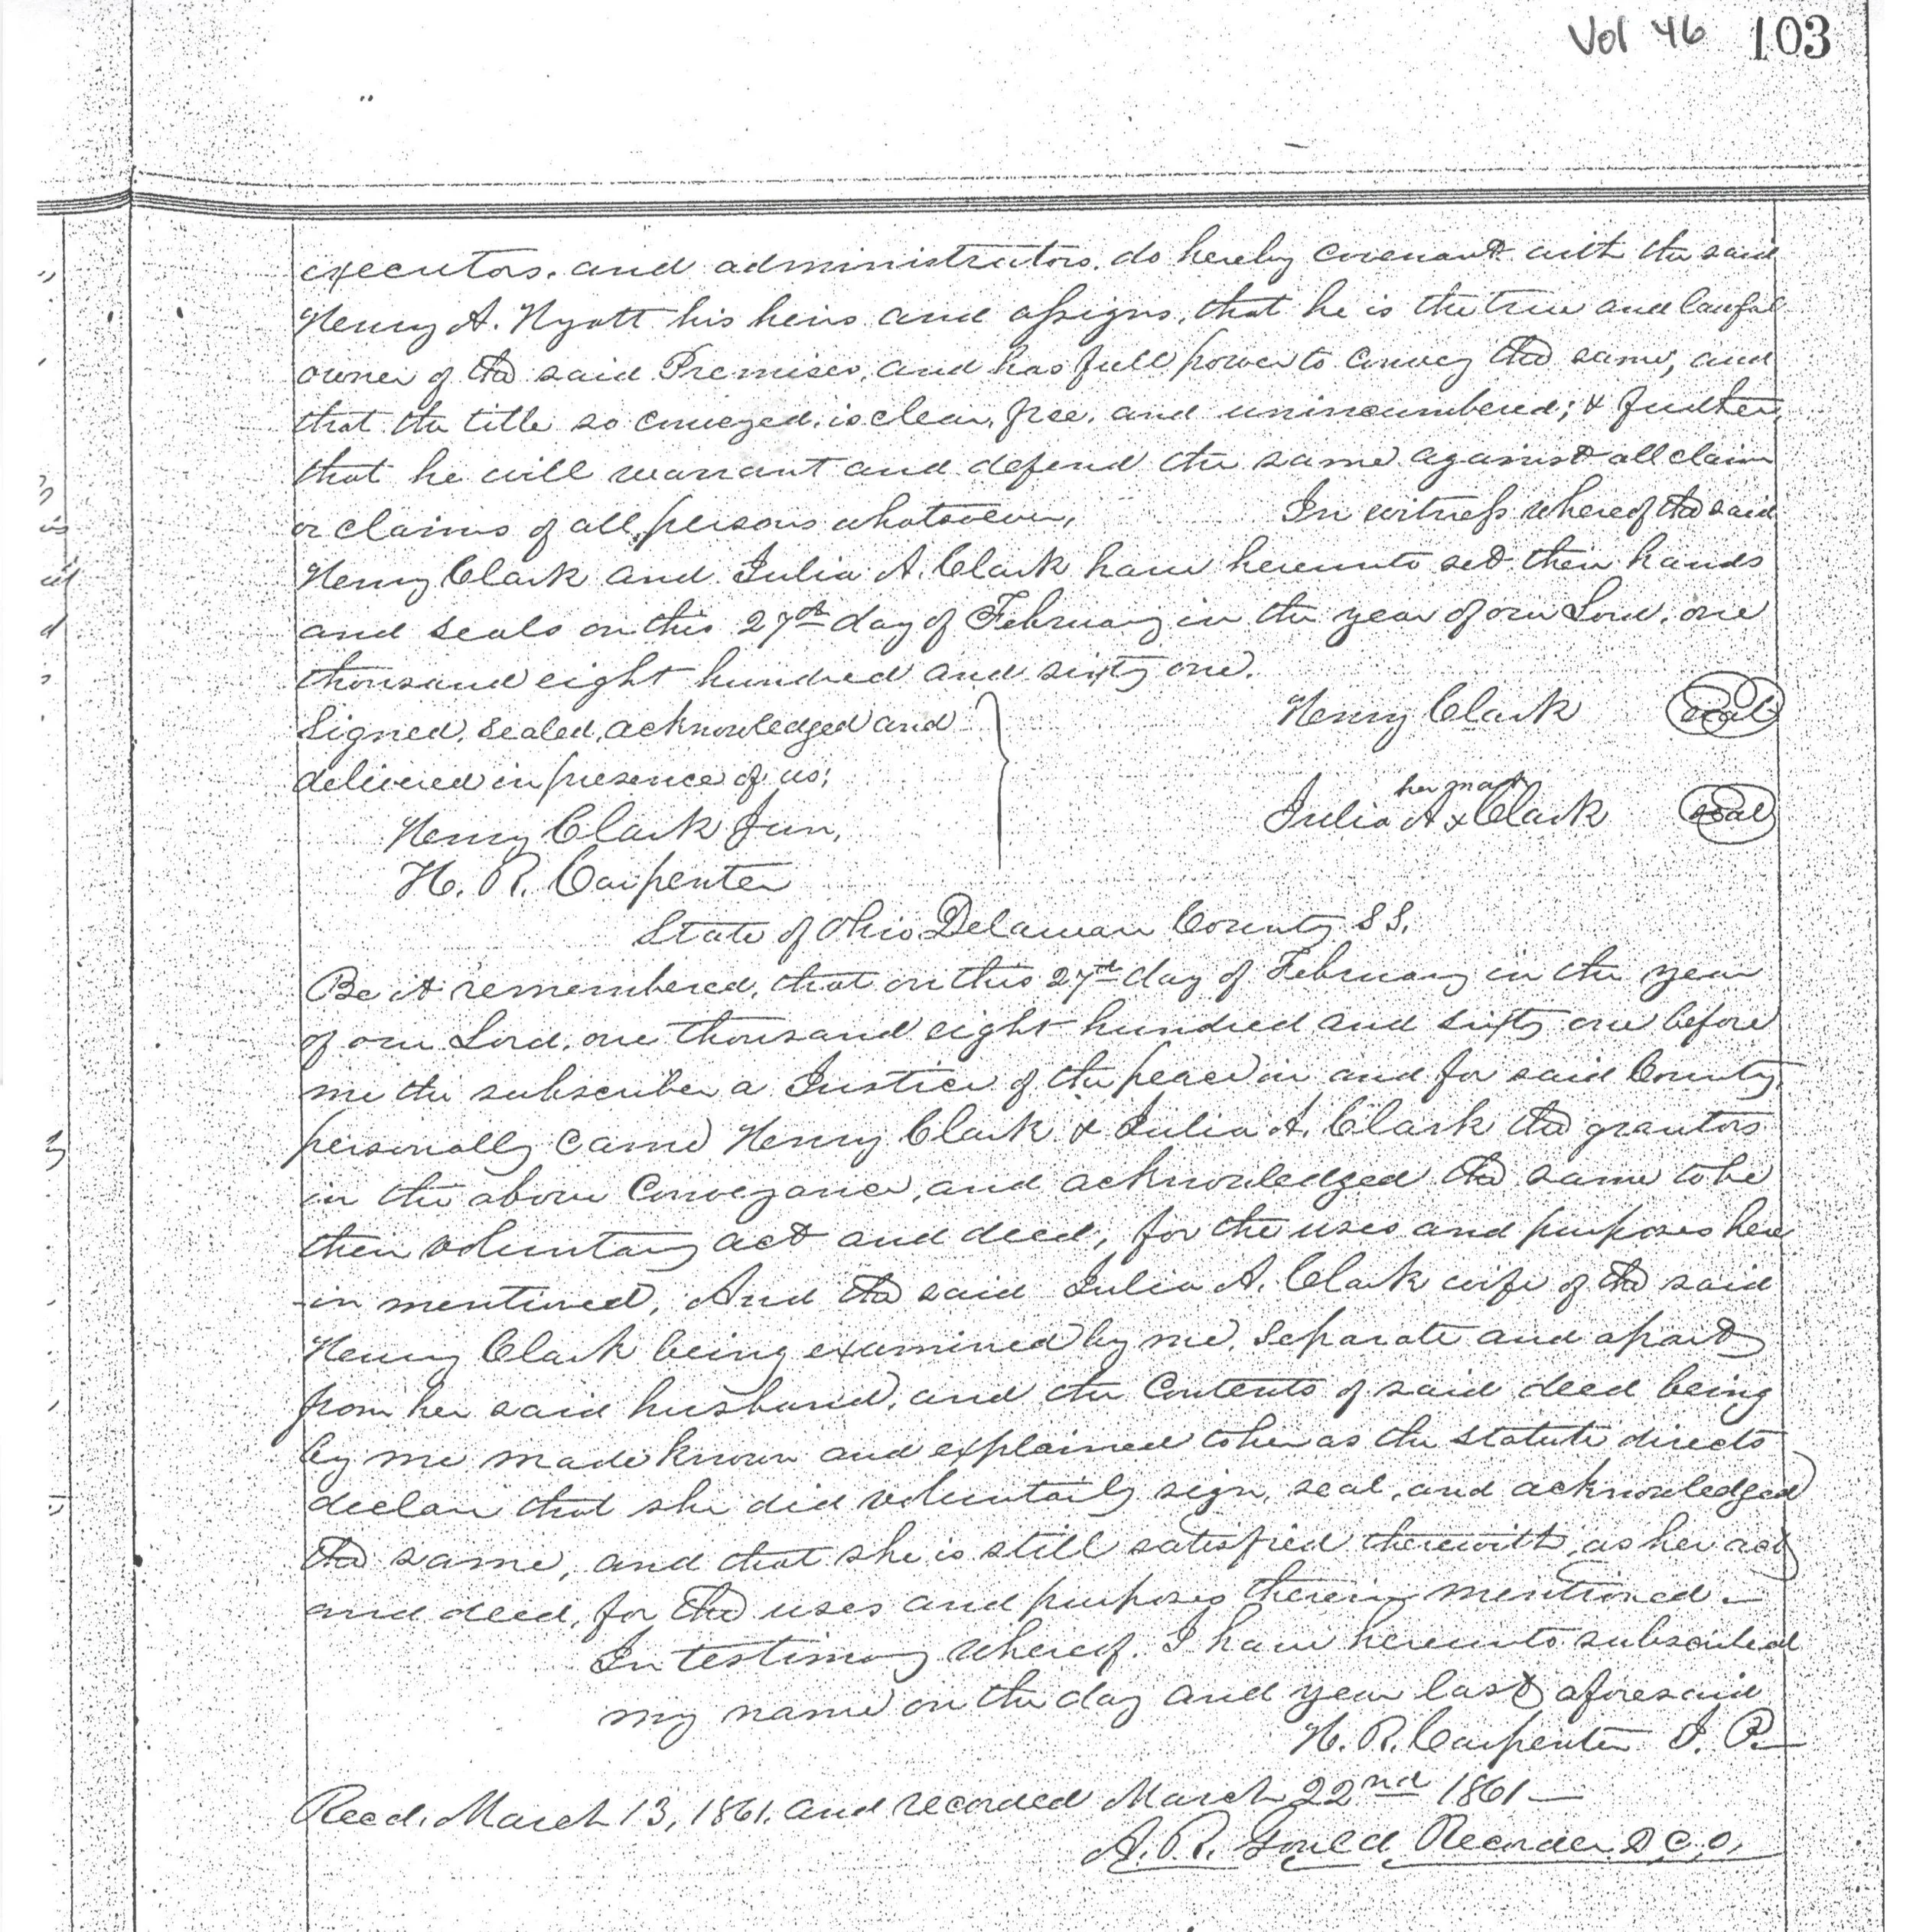 Vol 46 103
executors, and administrators, do hereby covenant with the said
Henry A. Wyatt his heirs and assigns, that he is the true and lawful
owner of the said Premises, and has full power to convey the same, and
that the title so conveyed, is clear, free, and unincumbered; & further,
that he will warrant and defend the same against all claim
or claims of all persons whatsoever, In witness whereof the said
Henry Clark and Julia A. Clark have hereunto set their hands
and seals on this 27th day of February in the year of our Lord, one
thousand eight hundred and sixty one.
Signed, sealed, acknowledged and Henry Clark seal
delivered in presence of us; her mark
Henry Clark Jun, Julia A x Clark seal
H. R. Carpenter
State of Ohio Delaware County SS.
Be it remembered, that on this 27th day of February in the year
of our Lord, one thousand eight hundred and sixty one before
me the subscriber a Justice of the peace in and for said County,
personally came Henry Clark & Julia A. Clark the grantors
in the above Conveyance, and acknowledged the same to be
their voluntary act and deed, for the uses and purposes here
-in mentioned, And the said Julia A. Clark wife of the said
Henry Clark being examined by me, separate and apart
from her said husband, and the Contents of said deed being
by me made known and explained to her as the statute directs
declare that she did voluntarily sign, seal, and acknowledged
the same, and that she is still satisfied therewith, as her act
and deed, for the uses and purposes therein mentioned.—
In testimony whereof, I have hereunto subscribed
my name on the day and year last aforesaid
H. R. Carpenter J. P.
Recd. March 13, 1861, and recorded March 22nd 1861—
A. R. Gould, Recorder D.C.O,